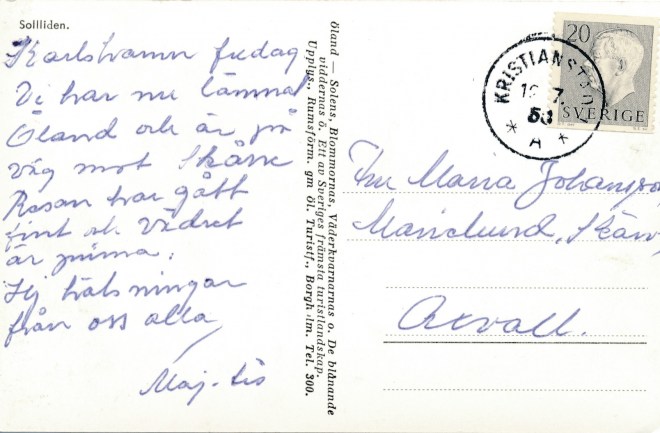 Sollliden.
Karlshamn fredag
Vi har nu lämnat
Öland och är på
väg mot Skåne
Resan har gått
fint och vädret
är prima.
Hej hälsningar
från oss alla
Maj-Lis
Öland — Solens, Blommornas, Väderkvarnarnas o. De blånande
viddernas ö. Ett av Sveriges främsta turistlandskap.
Upplys.: Rumsförm. gm Öl. Turistf., Borgholm. Tel. 300.
20
SVERIGE
KRISTIANSTAD
7.
* A *
Fru Maria Johansson
Marielund,
Axvall.